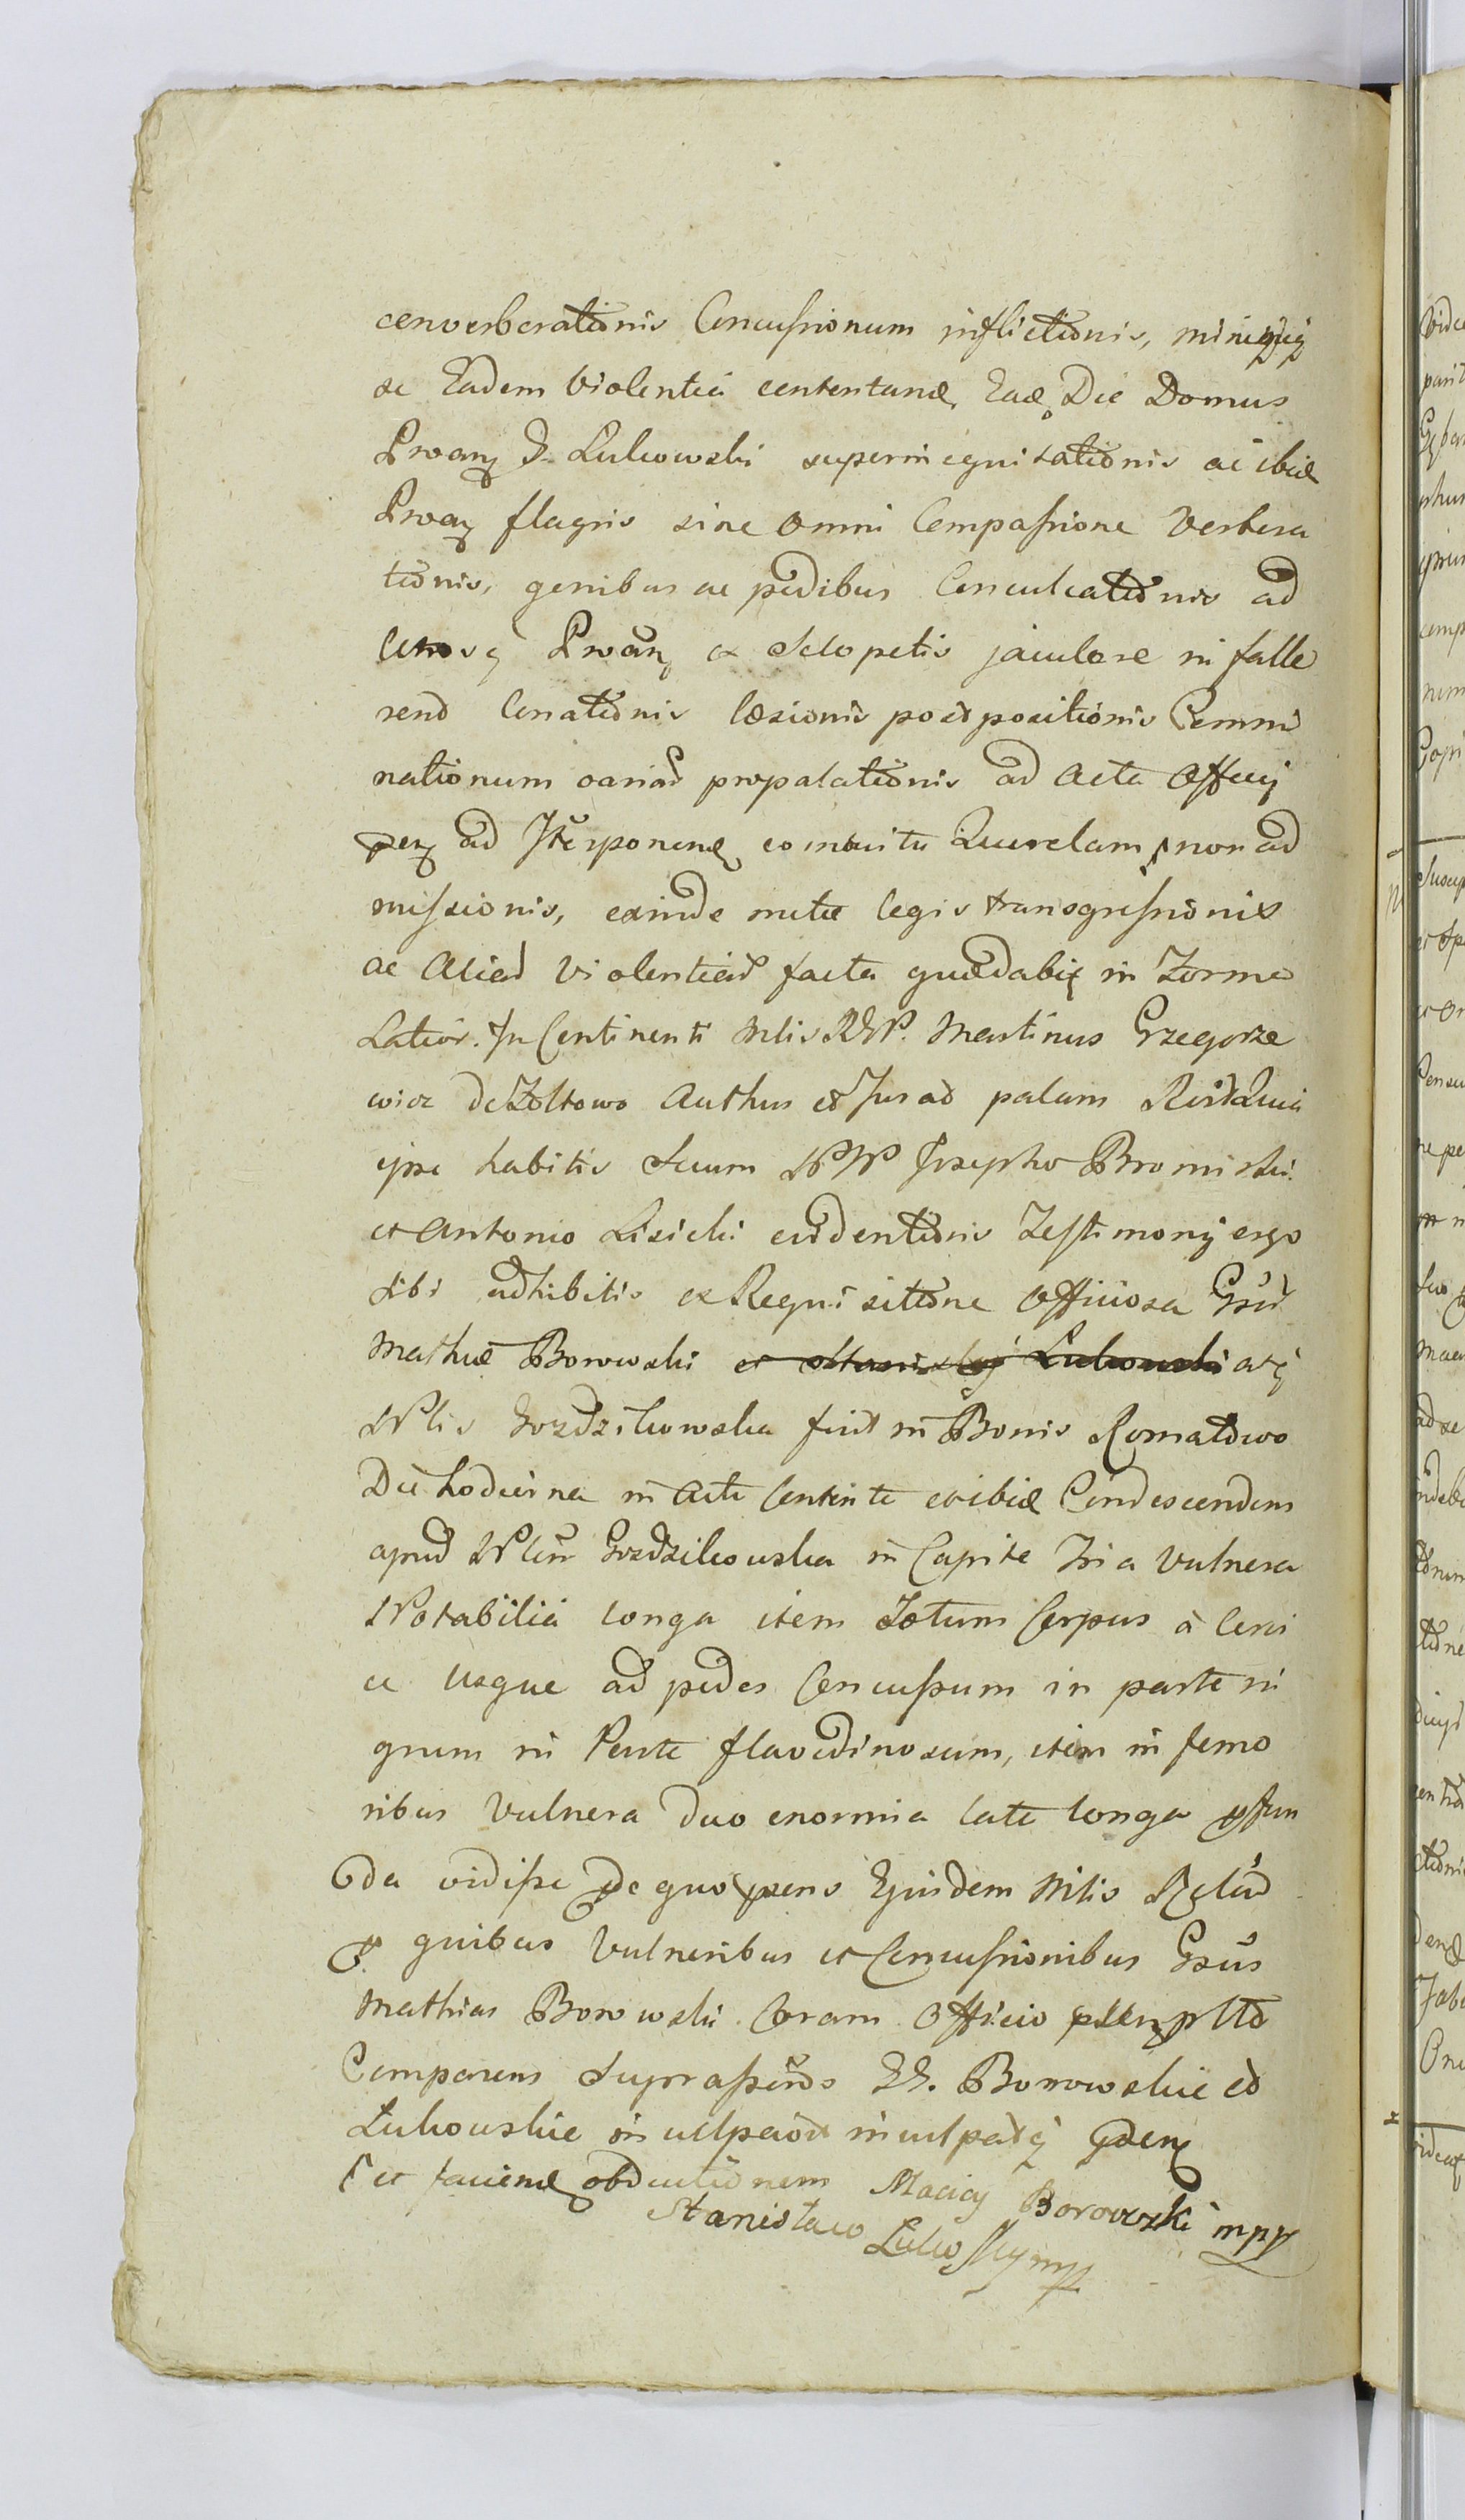 converberationis Concussionum inflictionis, minisq
ac Eadem Violentia contentand, Ead Die Domus
Prvang G. Lukowski superinequitationis ac ibid
Prvang flagris sine omni Compassione Verbera
tionis, genibus ac pedibus Conculcationis ad
Prvang ex Sclopetis jaculare
Conationis læsionis postpositionis Commi
nationum variar propalationis ad Acta Officij
ad Interponend eo intuitu Querelam non ad
missionis, exinde mulctæ legis transgressionis
ac Aliar Violentiar facta quædabit in Forma
Latior. In Continenti Mlis RGP. Martinus Grzegorze
wicz de Zoltowo Authus et Jurad palam Rcit Quia
ipse habitis Secum NN Josepho Bromirski
et Antonio Lisicki evidentioris Testimonij ergo
sibi adhibitis ex Requisitione Officiosa Gsi
Mathiæ Borowski et Stanislaj Lukowski atq
Nlis Gozdzikowska fuit in Bonis Romatowo
Die hodierna in Actu Contenta et ibid Condescendens
apud Nlem Gozdzikowska in Capite Tria Vulnera
Notabilia longa item Totum Corpus à Cervi
ce Usque ad pedes Concussum in parte ni
grum in Parte flavedinosum, item in femo
ribus Vulnera Duo enormia late longa pfun
da vidisse De quo pzens Ejusdem Mlis Relaō
P quibus Vulneribus et Concussionibus Gsūs
Mathias Borowski Coram Officio
Comparens Suprascr GG. Borowskie et
Lukowskie inculpavit inculpatq
et faciend obductionem Maciej Borowski mpp
Stanisław Lukoskympp